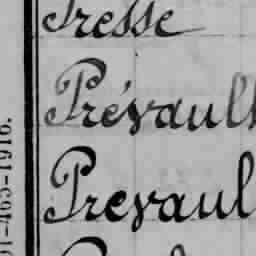 Presse
Prévault
Prevaul
01-465-1916.